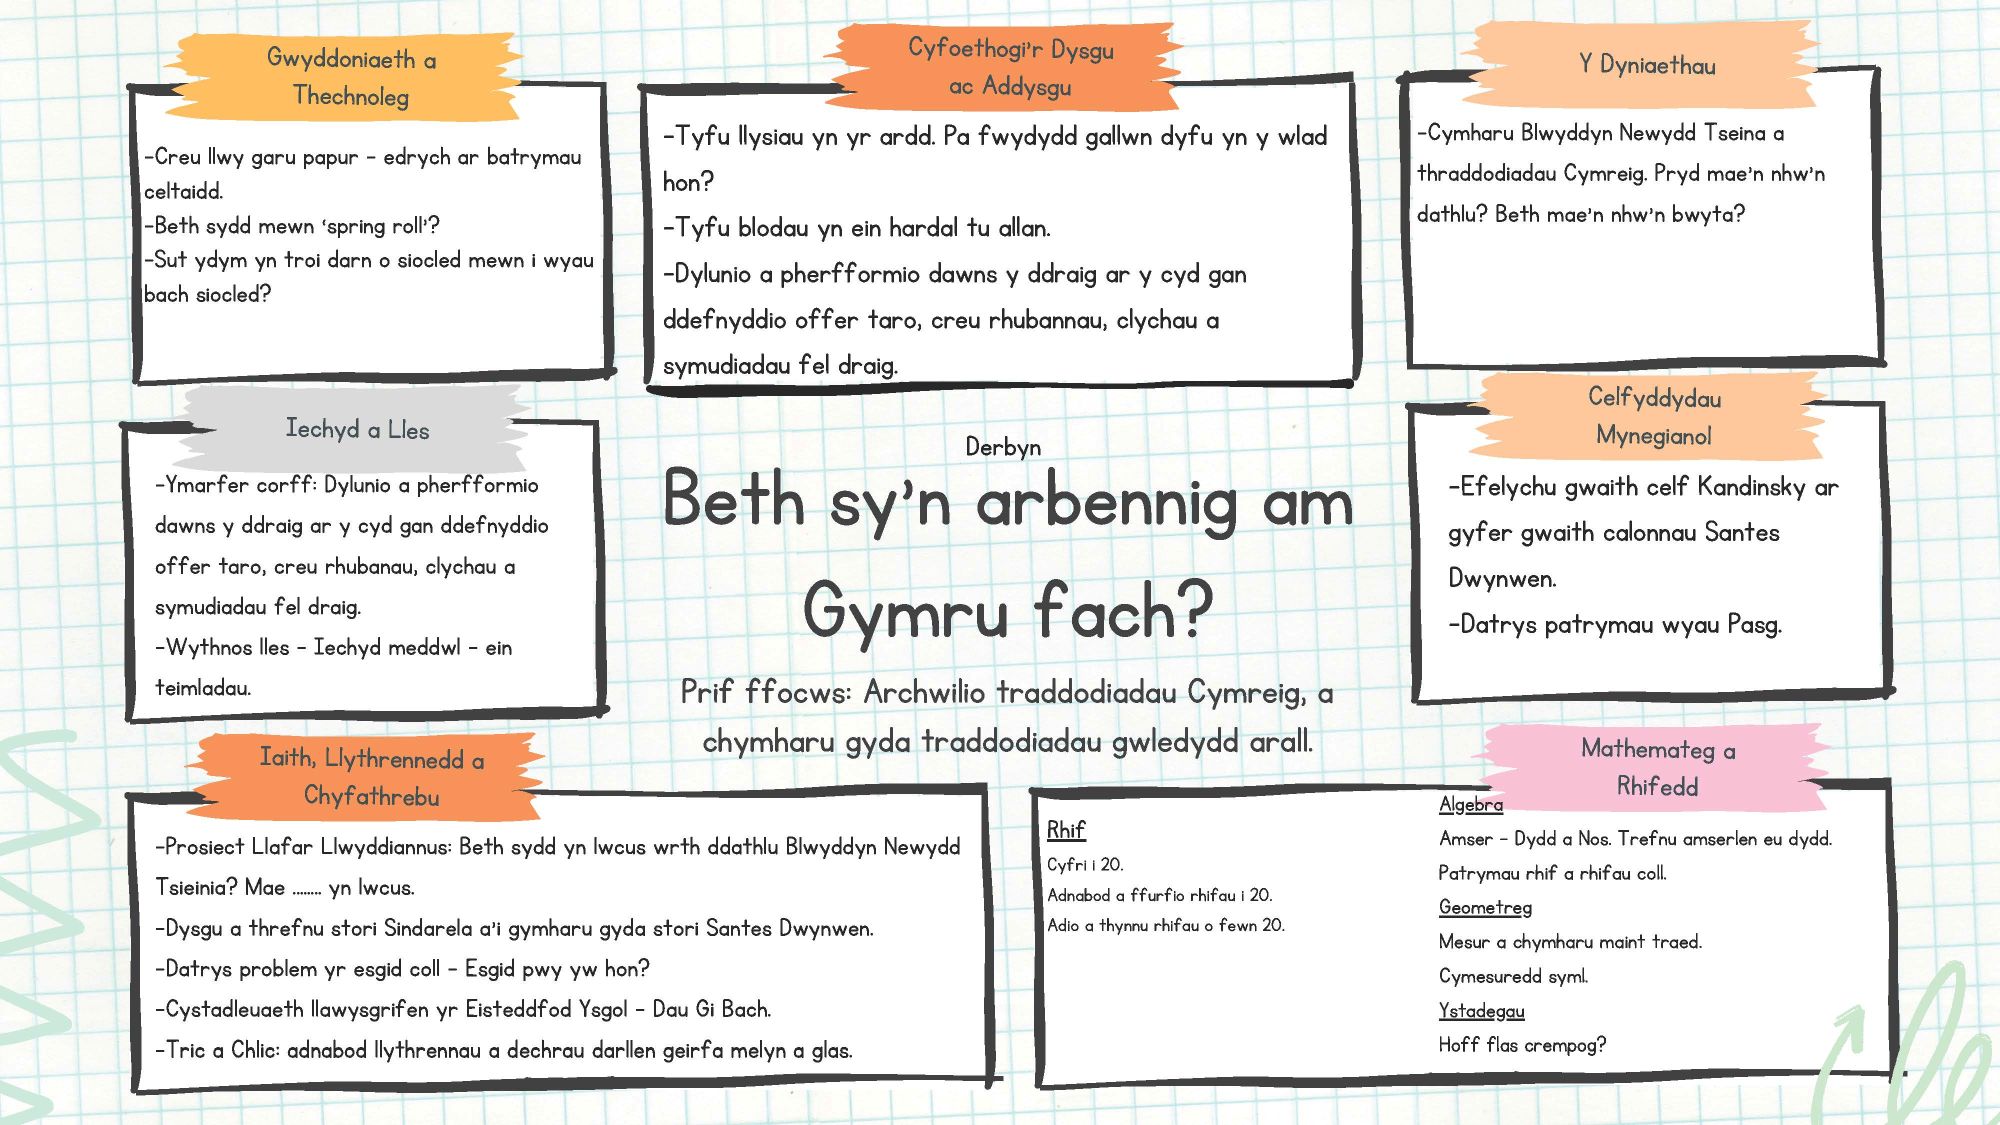 Gwyddoniaeth a
Thechnoleg
-Creu llwy garu papur - edrych ar batrymau
celtaidd.
-Beth sydd mewn ‘spring roll’?
-Sut ydym yn troi darn o siocled mewn i wyau
bach siocled?
Cyfoethogi’r Dysgu
ac Addysgu
-Tyfu llysiau yn yr ardd. Pa fwydydd gallwn dyfu yn y wlad
hon?
-Tyfu blodau yn ein hardal tu allan.
-Dylunio a pherfformio dawns y ddraig ar y cyd gan
ddefnyddio offer taro, creu rhubannau, clychau a
symudiadau fel draig.
Y Dyniaethau
-Cymharu Blwyddyn Newydd Tseina a
thraddodiadau Cymreig. Pryd mae’n nhw’n
dathlu? Beth mae’n nhw’n bwyta?
Iechyd a Lles
-Ymarfer corff: Dylunio a pherfformio
dawns y ddraig ar y cyd gan ddefnyddio
offer taro, creu rhubanau, clychau a
symudiadau fel draig.
-Wythnos lles - Iechyd meddwl - ein
teimladau.
Derbyn
Beth sy’n arbennig am
Gymru fach?
Prif ffocws: Archwilio traddodiadau Cymreig, a
chymharu gyda traddodiadau gwledydd arall.
Celfyddydau
Mynegianol
-Efelychu gwaith celf Kandinsky ar
gyfer gwaith calonnau Santes
Dwynwen.
-Datrys patrymau wyau Pasg.
Iaith, Llythrennedd a
Chyfathrebu
-Prosiect Llafar Llwyddiannus: Beth sydd yn lwcus wrth ddathlu Blwyddyn Newydd
Tsieinia? Mae ........ yn lwcus.
-Dysgu a threfnu stori Sindarela a’i gymharu gyda stori Santes Dwynwen.
-Datrys problem yr esgid coll - Esgid pwy yw hon?
-Cystadleuaeth llawysgrifen yr Eisteddfod Ysgol - Dau Gi Bach.
-Tric a Chlic: adnabod llythrennau a dechrau darllen geirfa melyn a glas.
Mathemateg a
Rhifedd
Rhif
Cyfri i 20.
Adnabod a ffurfio rhifau i 20.
Adio a thynnu rhifau o fewn 20.
Algebra
Amser - Dydd a Nos. Trefnu amserlen eu dydd.
Patrymau rhif a rhifau coll.
Geometreg
Mesur a chymharu maint traed.
Cymesuredd syml.
Ystadegau
Hoff flas crempog?